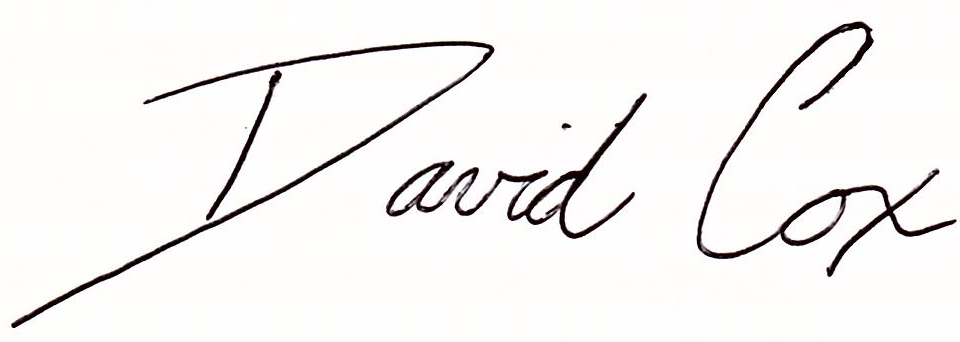 David Cox